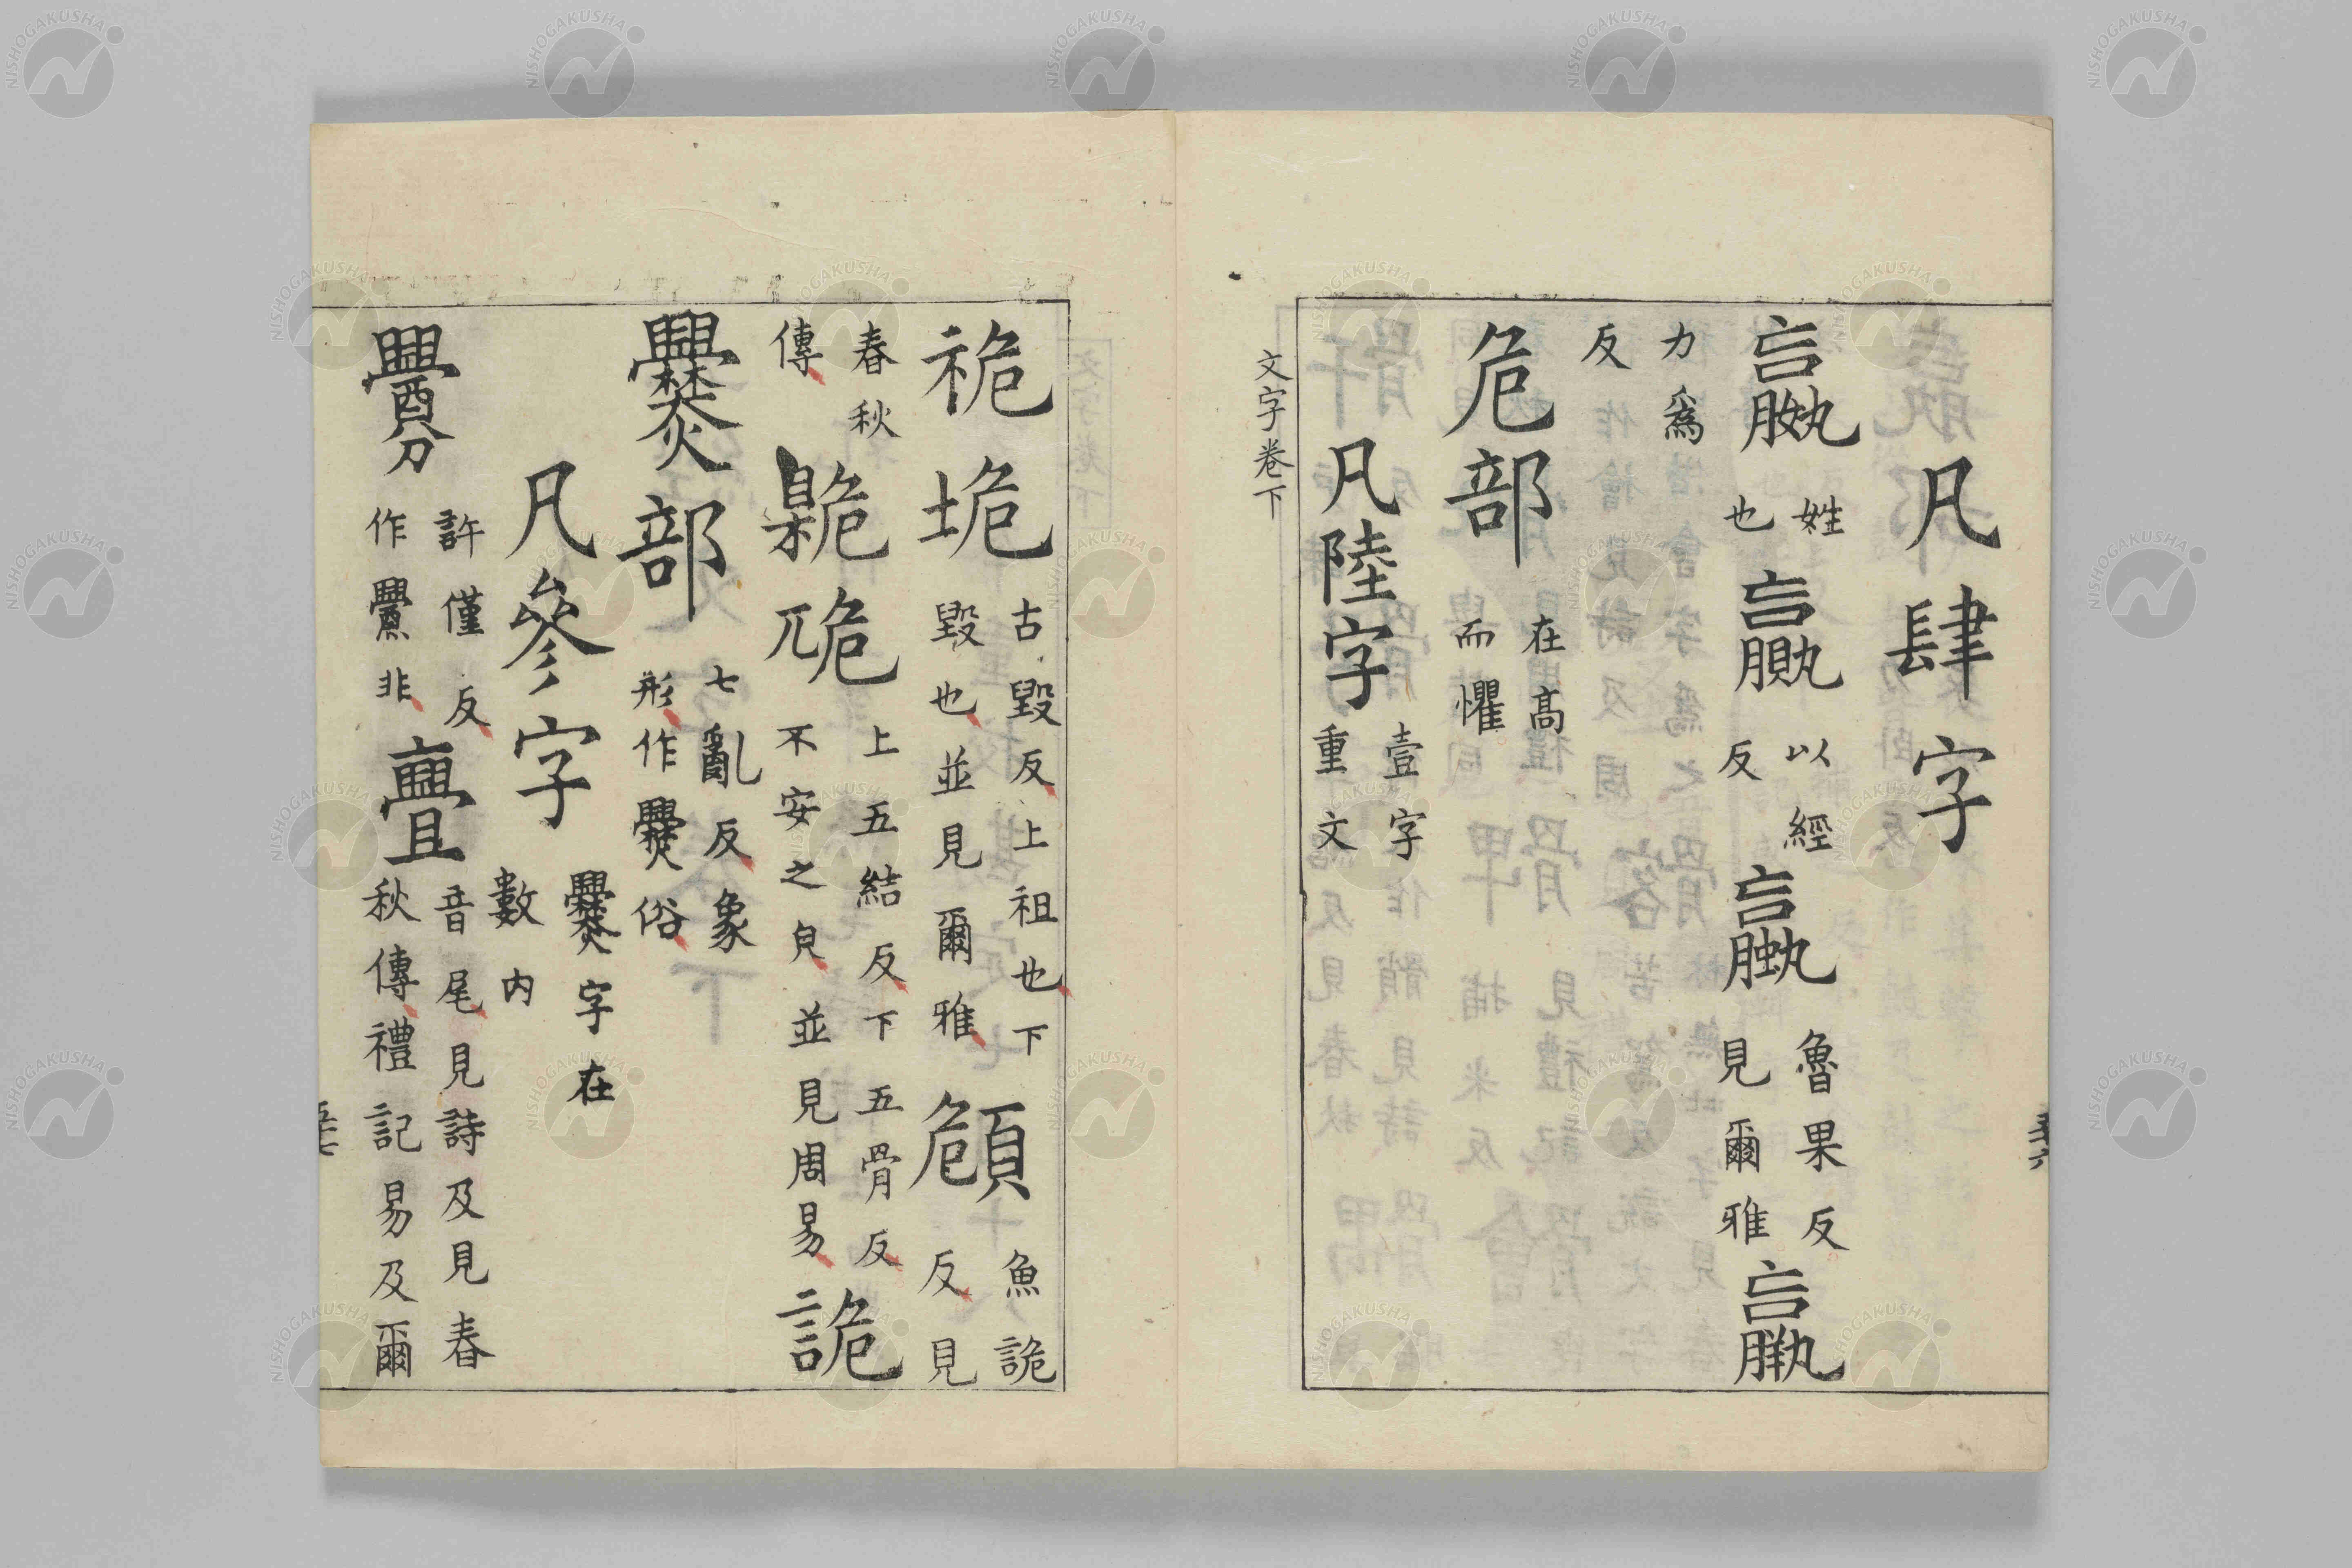 凡肆字
嬴姓也贏以經反蠃魯果反見爾雅羸
力爲反
危部在高而懼
凡陸字壹字重文
文字卷下
五十六
祪垝古毀反上祖也下毀也並見爾雅頠魚詭反見
春秋傳臲𡯓上五結反下五骨反不安之皃並見周易詭
爨部七亂反象形作爨俗
凡參字爨字在數内
釁許僅反作舋非亹音尾見詩及見春秋傳禮記易及爾
五十七
NISHOGAKUSHA